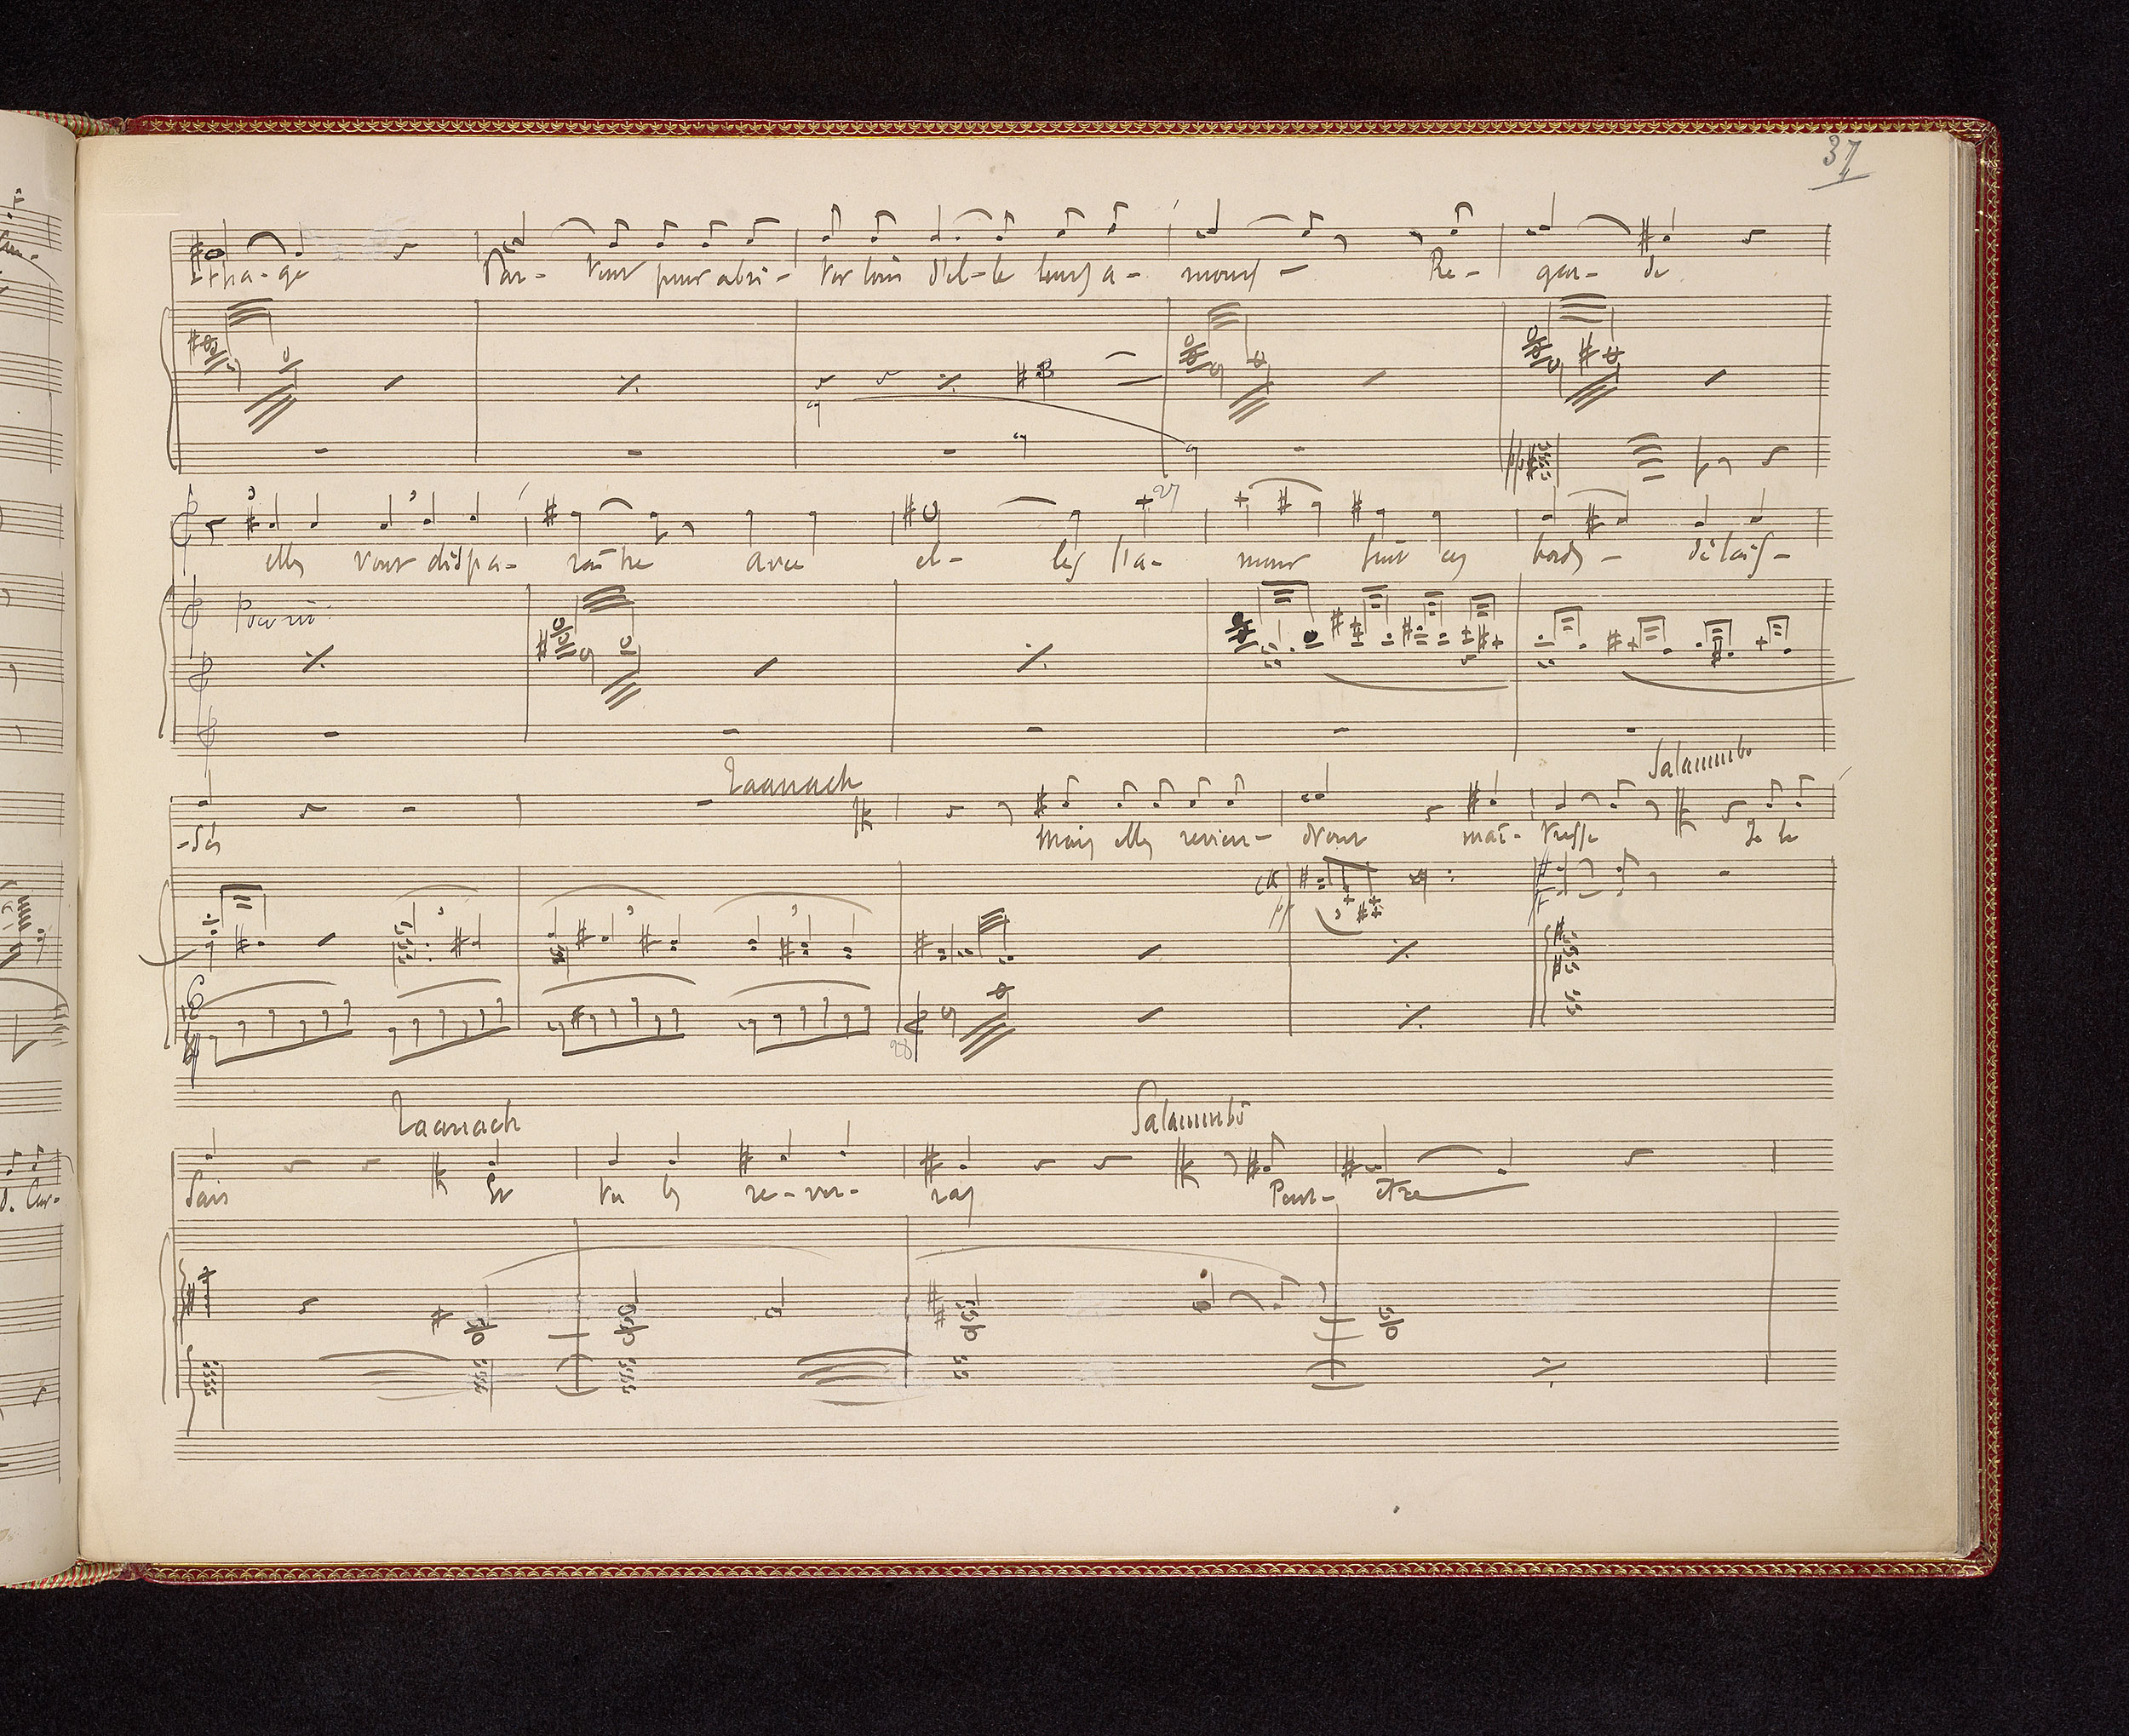 37
-tha-ge Par- tent pour abri- ter loin d'el-le leurs a- mours - Re- gar- de
27
elles vont dispa- raître avec el- les l'a- mour fuit ces bords - délais-
Taanach Salammbô
-sés Mais elles revien- dront maî- tresse Je le
pp
28
Taanach Salammbô
sais Et tu les re-ver- ras Peut- être